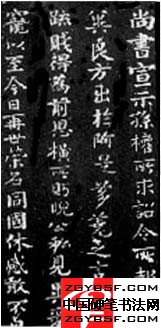 尚書宣示孫權所求詔令所報
冀良方出於阿是芻蕘之
疎賤得為前恩橫所盱睨公私見異
寵以至今日再世榮名同國休慼敢不
ZGYBSF.COM
中国硬笔书法网
www.ZGYBSF.com